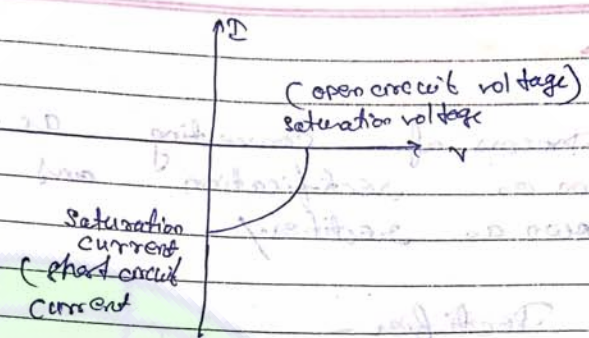 I
(open circuit voltage)
saturation voltage
V
Saturation
current
(short circuit
current